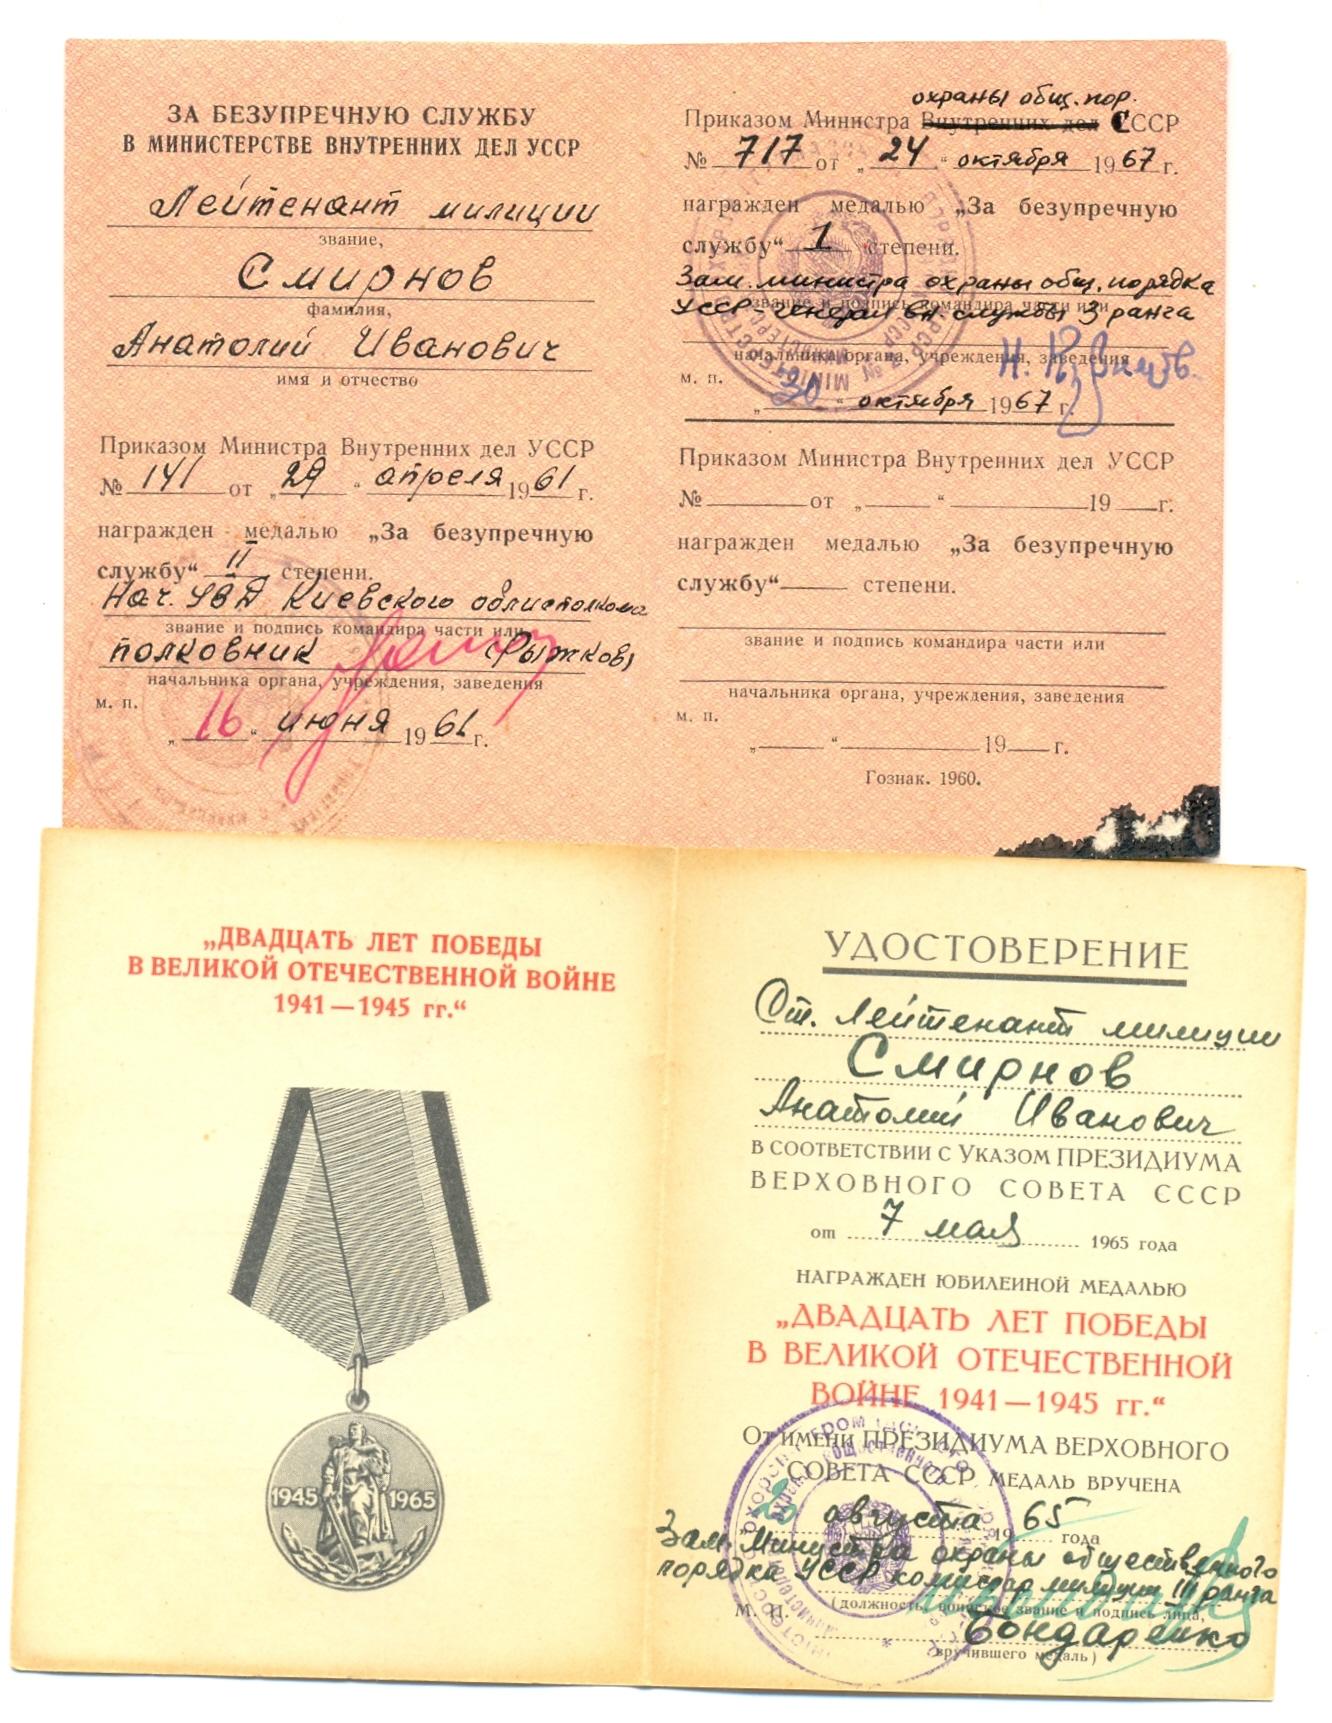 ЗА БЕЗУПРЕЧНУЮ СЛУЖБУ
В МИНИСТЕРСТВЕ ВНУТРЕННИХ ДЕЛ УССР
Лейтенант милиции
звание,
Смирнов
фамилия,
Анатолий Иванович
имя и отчество
Приказом Министра Внутренних дел УССР
№ 141 от „29“ апреля 1961 г.
награжден медалью „За безупречную
службу“ II степени.
Нач. УВД Киевского облисполкома
звание и подпись командира части или
полковник (Рыжков)
начальника органа, учреждения, заведения
м. п.
„16“ июня 1961 г.
охраны общ. пор.
Приказом Министра Внутренних дел СССР
№ 717 от „24“ октября 1967 г.
награжден медалью „За безупречную
службу“ 1 степени.
Зам. министра охраны общ. порядка
звание и подпись командира части или
УССР - генерал вн службы 3 ранга
начальника органа, учреждения, заведения
м. п.
„30“ октября 1967 г.
Приказом Министра Внутренних дел УССР
№ от „ “ 19 г.
награжден медалью „За безупречную
службу“ степени.
звание и подпись командира части или
начальника органа, учреждения, заведения
м. п.
„ “ 19 г.
Гознак. 1960.
„ДВАДЦАТЬ ЛЕТ ПОБЕДЫ
В ВЕЛИКОЙ ОТЕЧЕСТВЕННОЙ ВОЙНЕ
1941—1945 гг.“
1945 1965
УДОСТОВЕРЕНИЕ
Ст. лейтенант милиции
Смирнов
Анатолий Иванович
В СООТВЕТСТВИИ С УКАЗОМ ПРЕЗИДИУМА
ВЕРХОВНОГО СОВЕТА СССР
от 7 мая 1965 года
НАГРАЖДЕН ЮБИЛЕЙНОЙ МЕДАЛЬЮ
„ДВАДЦАТЬ ЛЕТ ПОБЕДЫ
В ВЕЛИКОЙ ОТЕЧЕСТВЕННОЙ
ВОЙНЕ 1941—1945 гг.“
ОТ ИМЕНИ ПРЕЗИДИУМА ВЕРХОВНОГО
СОВЕТА СССР МЕДАЛЬ ВРУЧЕНА
20 августа 1965 года
Зам. Министра охраны общественного
порядка УССР комиссар милиции III ранга
М. П. (должность, воинское звание и подпись лица,
Бондаренко
вручившего медаль)